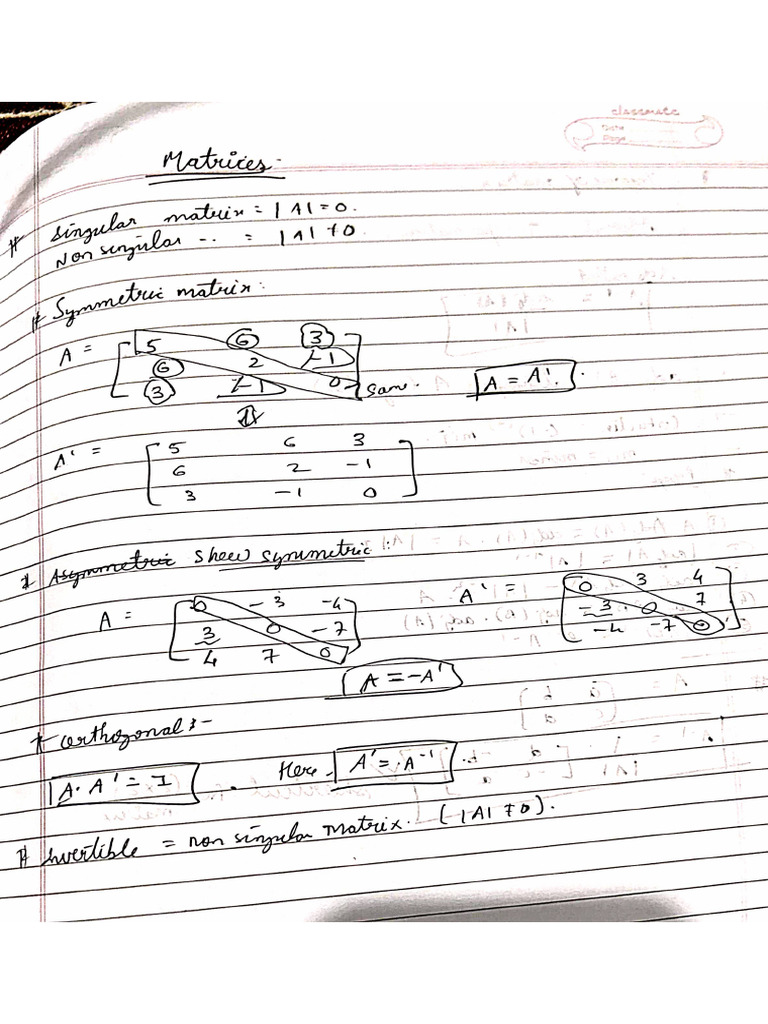 classmate
Date
Page
Matrices:-
# Singular matrix = |A| = 0.
Non singular -. = |A| ≠ 0
# Symmetric matrix:
A = [5 6 3
6 2 -1
3 -1 0] sam. A = A'.
⇓
A' = [5 6 3
6 2 -1
3 -1 0]
# Asymmetric Skew symmetric:
A = [0 -3 -4
3 0 -7
4 7 0]
A' = [0 3 4
-3 0 7
-4 -7 0]
A = -A'
# Orthogonal :-
A. A' = I . Here A' = A⁻¹ .
# Invertible = non singular matrix. (|A| ≠ 0).